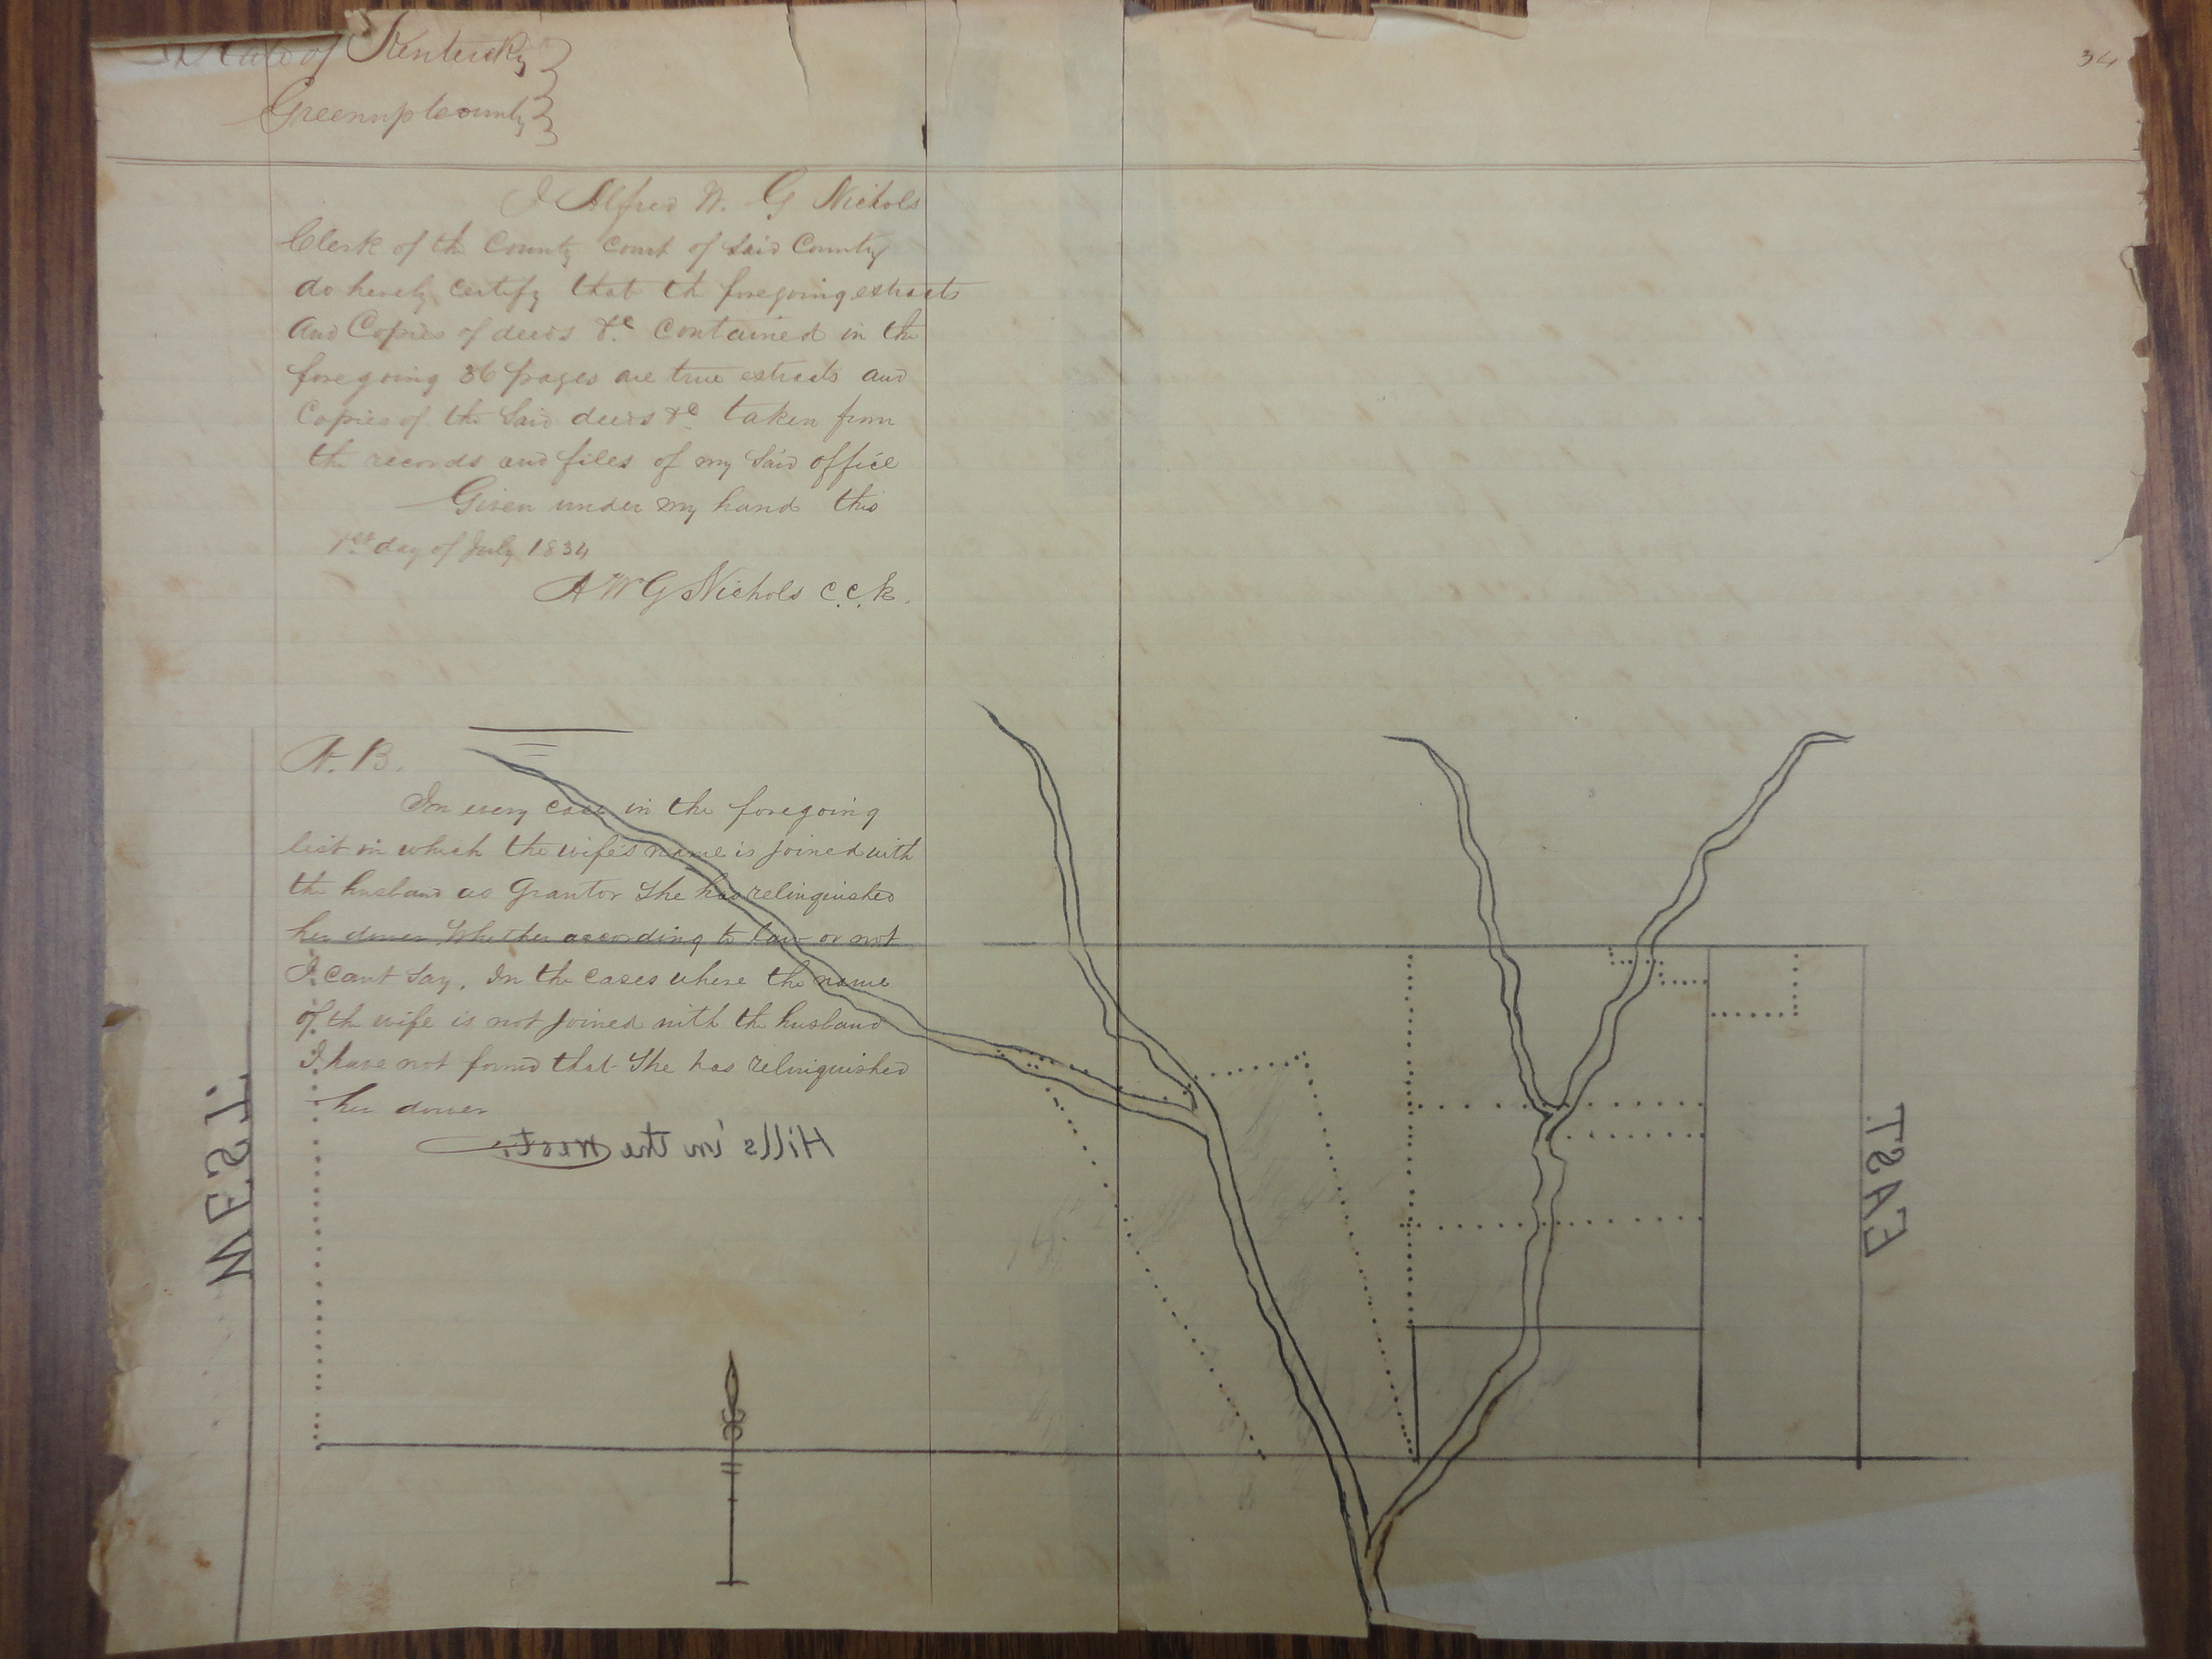 State of Kentucky
Greenup County
34
I Alfred W. G Nichols
Clerk of the County Court of Said County
do hereby certify that the foregoing extracts
And Copies of deeds &c contained in the
foregoing 36 pages are true extracts and
Copies of the Said deeds &c taken from
the records and files of my Said office
Given under my hand this
1st day of July 1834
A W G Nichols C.C.K.
N.B.
In every case in the foregoing
list in which the wife's name is joined with
the husband as Grantor She has relinquished
her dower Whether according to law or not
I cant Say. In the cases where the name
of the wife is not joined with the husband
I have not found that She has relinquished
her dower
Hills in the West.
WEST.
EAST.